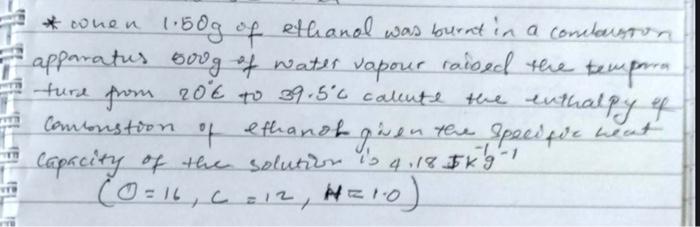 * when 1.50g of ethanol was burnt in a combustion
apparatus 500g of water vapour raised the tempera
-ture from 20°C to 39.5°C calcute the enthalpy of
Combustion of ethanol given the specific heat
Capacity of the solution is 4.18 JK⁻¹g⁻¹
(O=16, C=12, H=1.0)